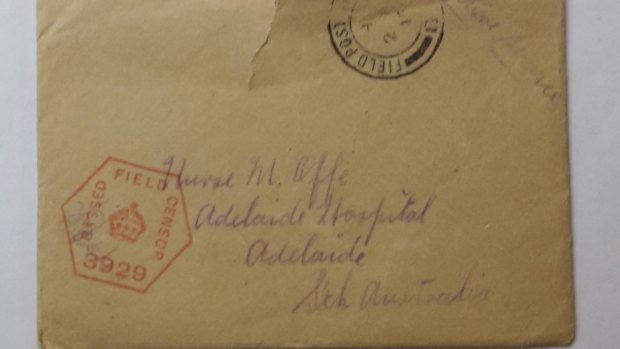 FIELD POST
PASSED FIELD CENSOR
3929
Nurse M. Offe
Adelaide Hospital
Adelaide
Sth Australia